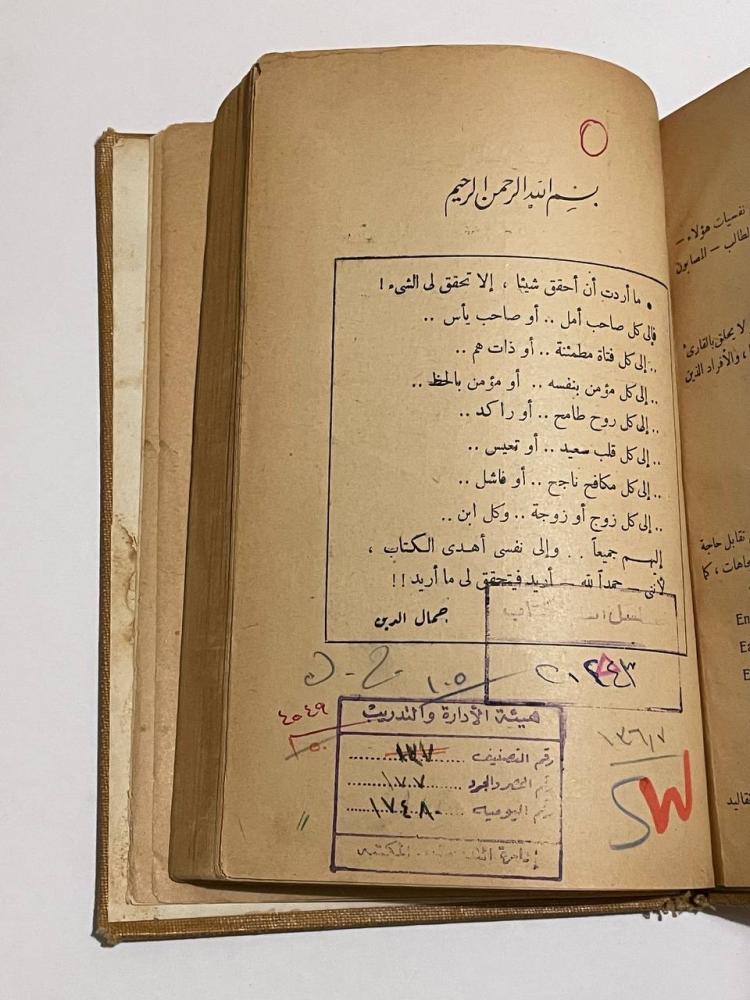 بسم الله الرحمن الرحيم
• ما أردت أن أحقق شيئا ، إلا تحقق لى الشىء !
فإلى كل صاحب أمل .. أو صاحب يأس ..
.. إلى كل فتاة مطمئنة .. أو ذات هم ..
.. إلى كل مؤمن بنفسه .. أو مؤمن بالحظ ..
.. إلى كل روح طامح .. أو راكد ..
.. إلى كل قلب سعيد .. أو تعيس ..
.. إلى كل مكافح ناجح .. أو فاشل ..
.. إلى كل زوج أو زوجة .. وكل ابن ..
إليهم جميعاً .. وإلى نفسى أهدى الكتاب ،
لأننى — حمداً لله — أريد فيتحقق لى ما أريد !!
جمال الدين
١٠٥
٤٠٤٩
هيئة الأدارة والتدريب
رقم التصنيف
رقم الحصر والجرد ١٧٠٧
رقم اليومية ١٧٤٨٠
١٣٦/٧
SW
نفسيات هؤلاء —
الطالب — المصابون
لا يحلق بالقارىء
، والأفراد الذين
تقابل حاجة
كما
En
Ea
E